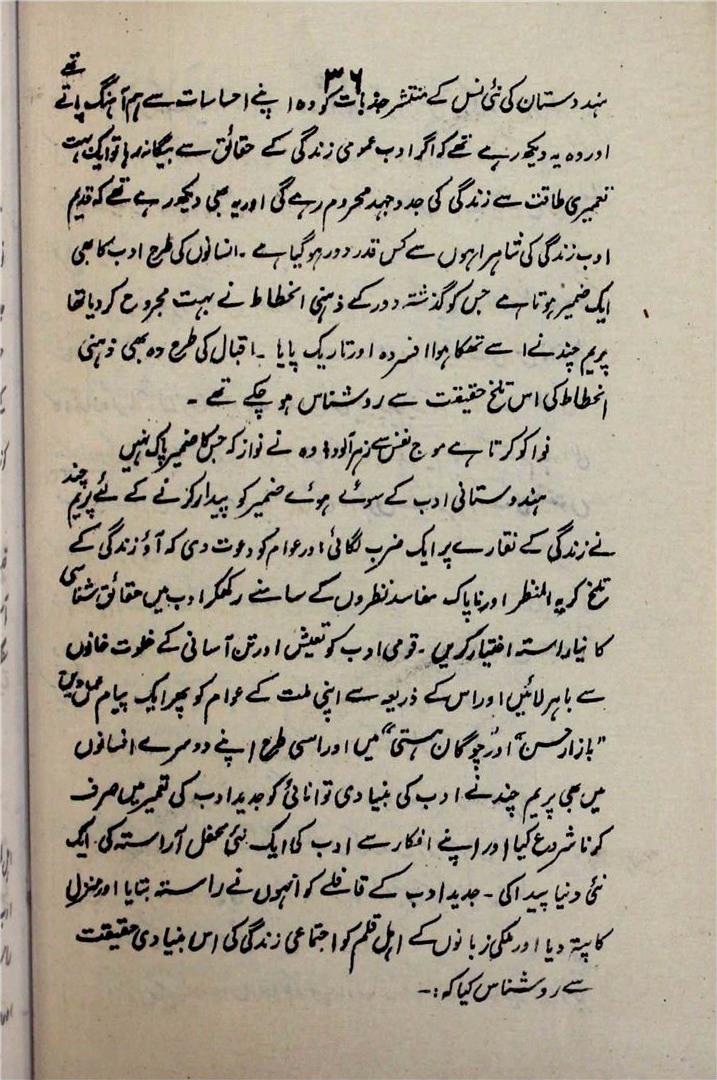 ۳۶
ہندوستان کی نئی نسل کے منتشر جذبات کو وہ اپنے احساسات سے ہم آہنگ پاتے تھے
اور وہ یہ دیکھ رہے تھے کہ اگر ادب عمومی زندگی کے حقائق سے بیگانہ رہا تو ایک بہت
تعمیری طاقت سے زندگی کی جدوجہد محروم رہے گی اور یہ بھی دیکھ رہے تھے کہ قدیم
ادب زندگی کی شاہراہوں سے کس قدر دور ہو گیا ہے ۔ انسانوں کی طرح ادب کا بھی
ایک ضمیر ہوتا ہے جس کو گذشتہ دور کے ذہنی انحطاط نے بہت مجروح کر دیا تھا
پریم چند نے اسے تھکا ہوا افسردہ اور تاریک پایا ۔ اقبال کی طرح وہ بھی ذہنی
انحطاط کی اس تلخ حقیقت سے روشناس ہو چکے تھے ۔
نوا کو کرتا ہے موج نفس سے زہر آلود وہ نے نواز کہ جس کا ضمیر پاک نہیں
ہندوستانی ادب کے سوئے ہوئے ضمیر کو بیدار کرنے کے لئے پریم چند
نے زندگی کے نقارے پر ایک ضرب لگائی اور عوام کو دعوت دی کہ آؤ زندگی کے
تلخ کریہ المنظر اور ناپاک مفاسد نظروں کے سامنے رکھکر ادب میں حقائق شناسی
کا نیا راستہ اختیار کریں ۔ قومی ادب کو تعیش اور تن آسانی کے خلوت خانوں
سے باہر لائیں اور اس کے ذریعہ سے اپنی ملت کے عوام کو پھر ایک پیام عمل دیں
"بازار حسن" اور "چوگان ہستی" میں اور اسی طرح اپنے دوسرے افسانوں
میں بھی پریم چند نے ادب کی بنیادی توانائی کو جدید ادب کی تعمیر میں صرف
کرنا شروع کیا اور اپنے افکار سے ادب کی ایک نئی محفل آراستہ کی ۔ ایک
نئی دنیا پیدا کی ۔ جدید ادب کے قافلے کو انہوں نے راستہ بتایا اور منزل
کا پتہ دیا اور ملکی زبانوں کے اہل قلم کو اجتماعی زندگی کی اس بنیادی حقیقت
سے روشناس کیا کہ :۔